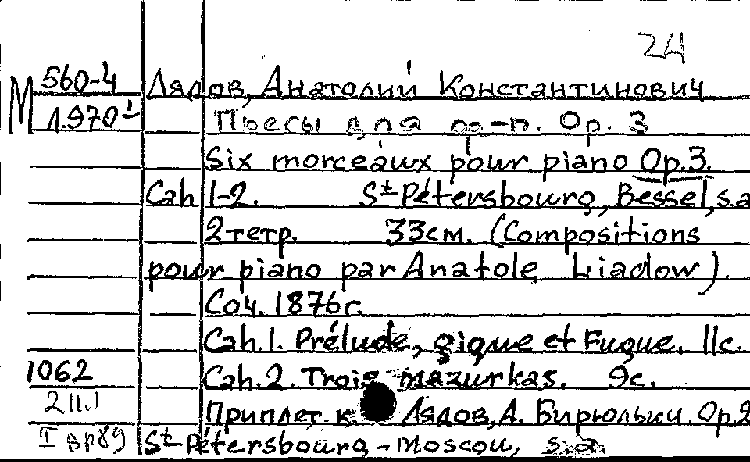 24
560-4 Лядов, Анатолий Константинович
М 1970 Пьесы для ф-п. Op. 3
Six morceaux pour piano Op.3.
Cah 1-2. St Pétersbourg, Bessel, s.a
2 тетр. 33см. (Compositions
pour piano par Anatole Liadow).
Соч. 1876г.
Cah.1. Prélude, gigue et Fugue. 11с.
1062 Cah.2. Trois mazurkas. 9с.
Приплет. к Лядов, А. Бирюльки. Ор.2
St Pétersbourg - Moscou, s.a.